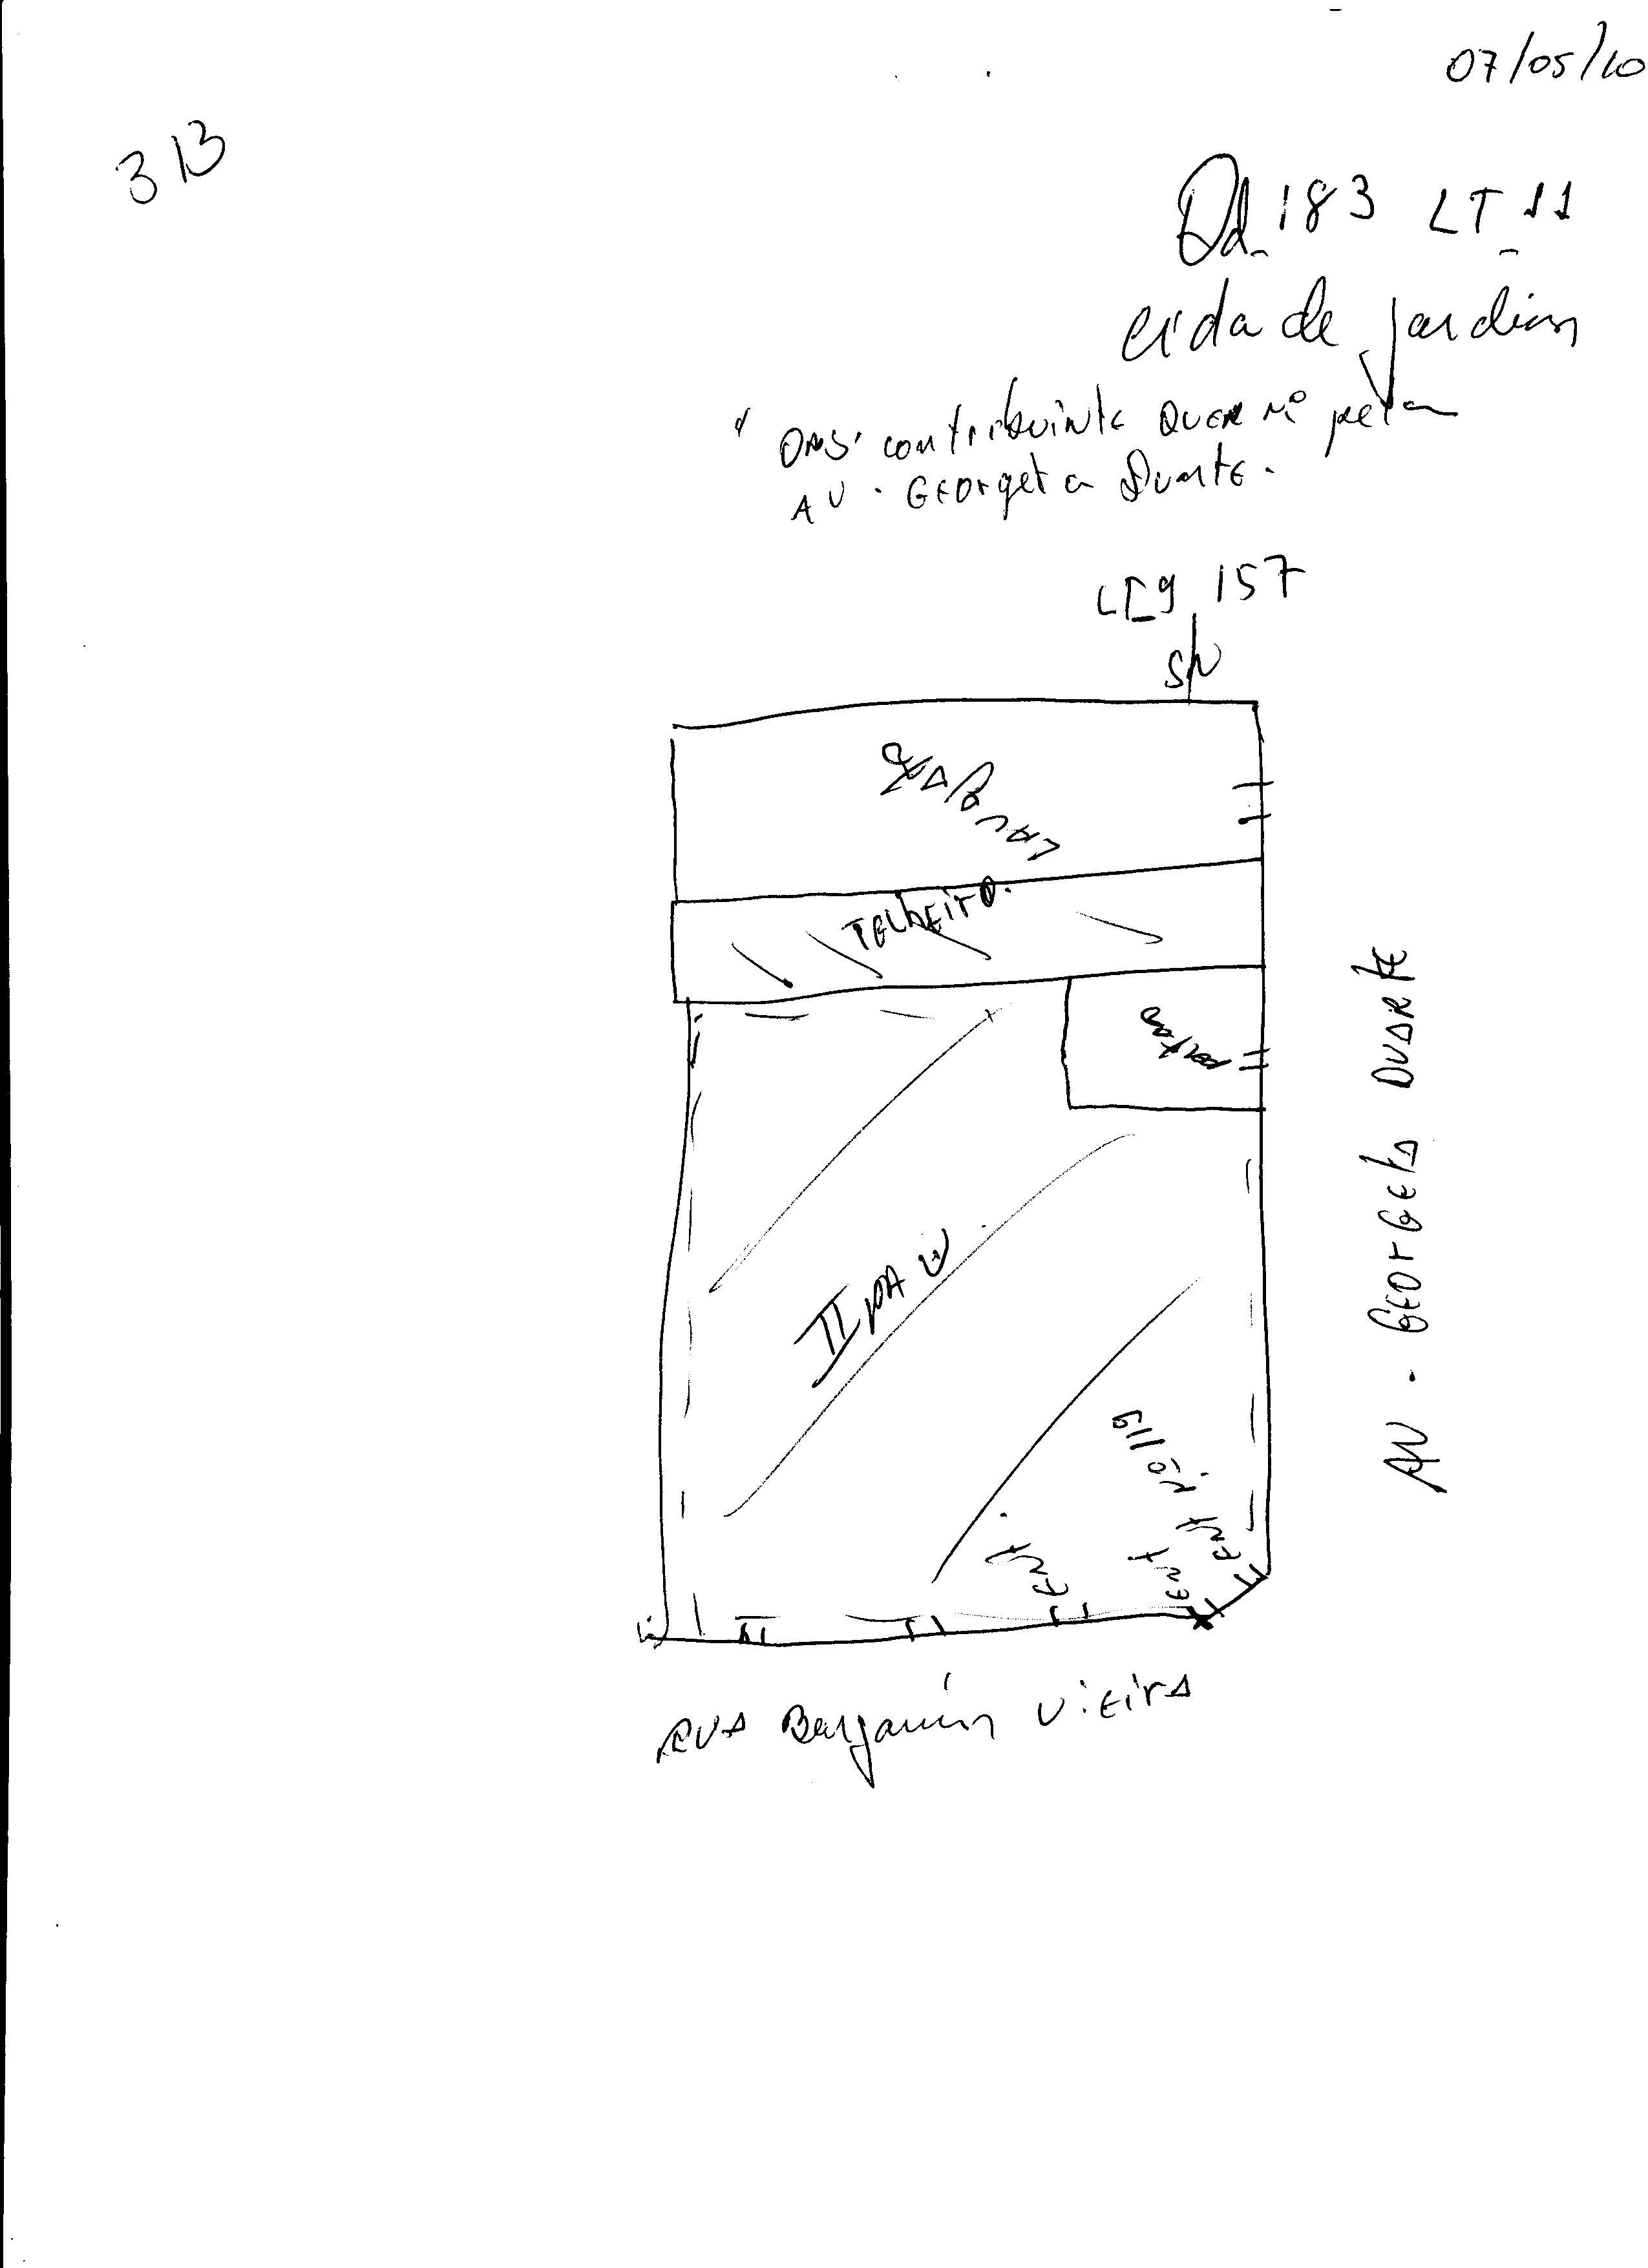 07/05/10
313
Qd. 183 LT 11
cidade jardim
OBS. contribuinte QUER Nº pela
AV. GEOrgeta Duarte.
LEg 157
S/N
GALPÃO
TELhEirO.
portão
II pAV
AV. GEOrGEtA DUARtE
ENt Nº 119
ENt
ENt.
RUA Benjamin ViEirA